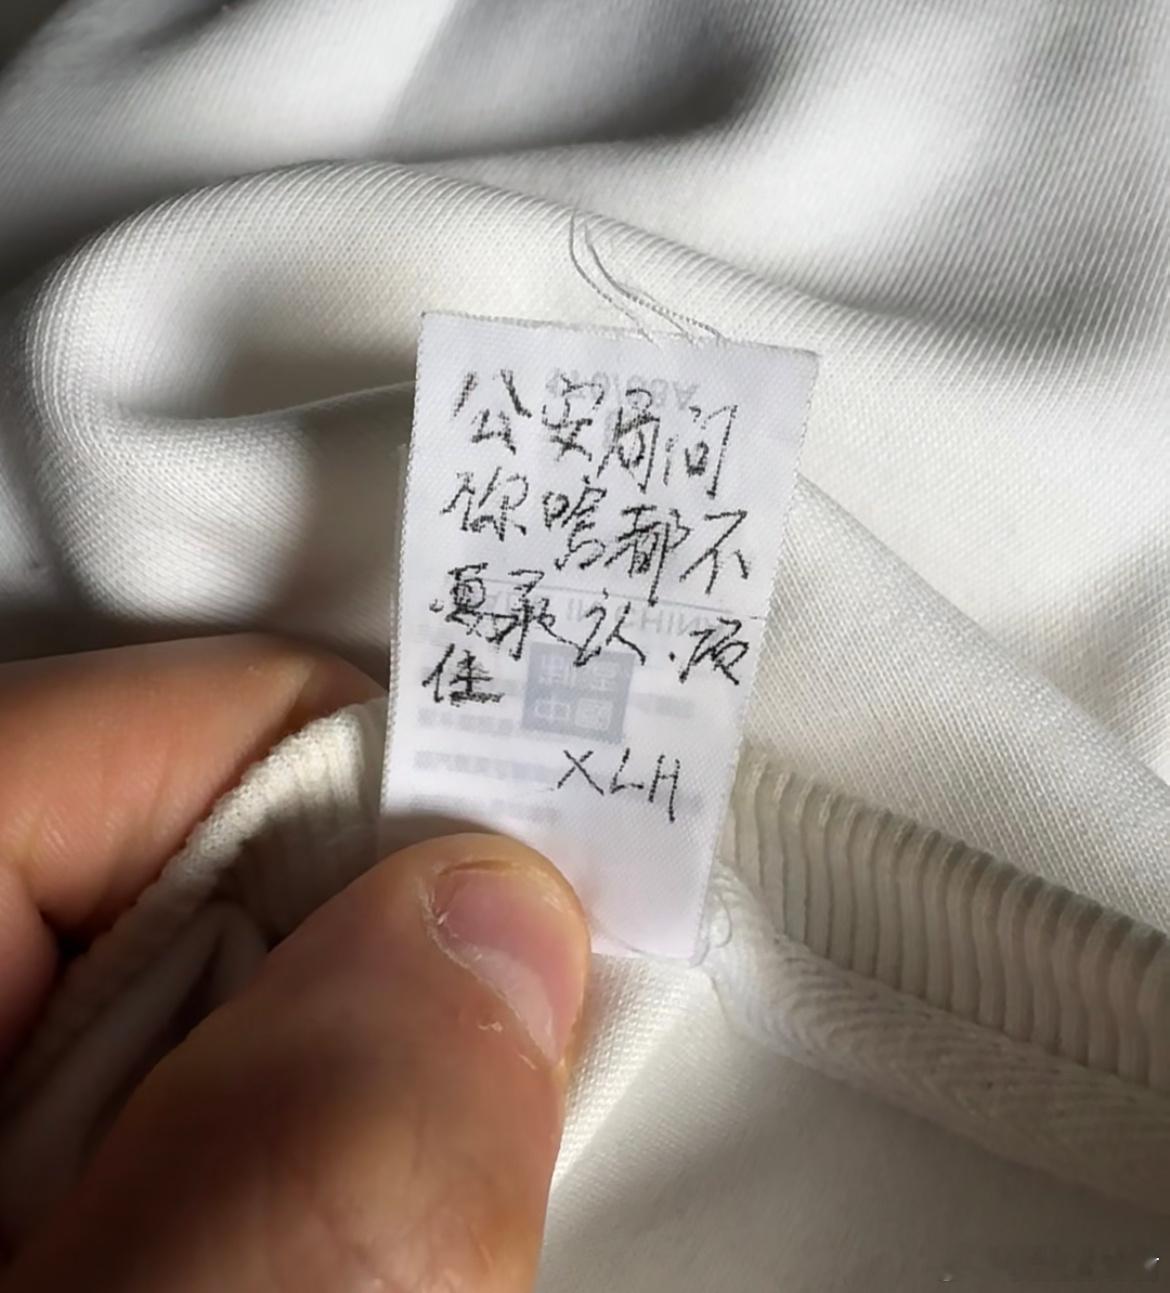 公安局问
你啥都不
要承认.顶
住
XLH